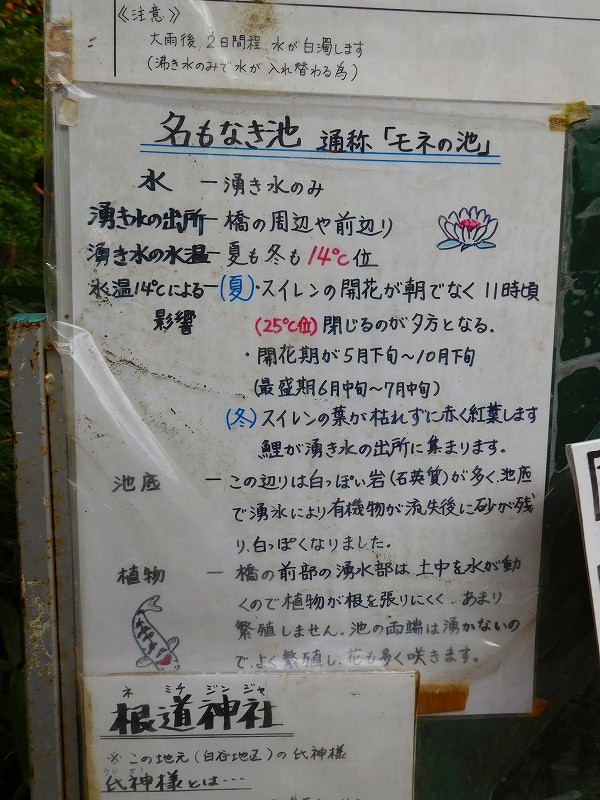 《注意》
大雨後、2日間程、水が白濁します
(沸き水のみで水が入れ替わる為)
名もなき池 通称「モネの池」
水 ー湧き水のみ
湧き水の出所ー橋の周辺や前辺り
湧き水の水温ー夏も冬も14℃位
水温14℃によるー(夏)・スイレンの開花が朝でなく11時頃
影響 (25℃位)閉じるのが夕方となる.
・開花期が5月下旬〜10月下旬
(最盛期6月中旬〜7月中旬)
(冬)スイレンの葉が枯れずに赤く紅葉します
鯉が湧き水の出所に集まります。
池底 ーこの辺りは白っぽい岩(石英質)が多く、池底
で湧水により有機物が流失後に砂が残
り、白っぽくなりました.
植物 ー橋の前部の湧水部は土中を水が動
くので植物が根を張りにくく、あまり
繁殖しません.池の両端は湧かないの
で、よく繁殖し、花も多く咲きます。
ネミチジンジャ
根道神社
※この地元(白谷地区)の氏神様
氏神様とは…